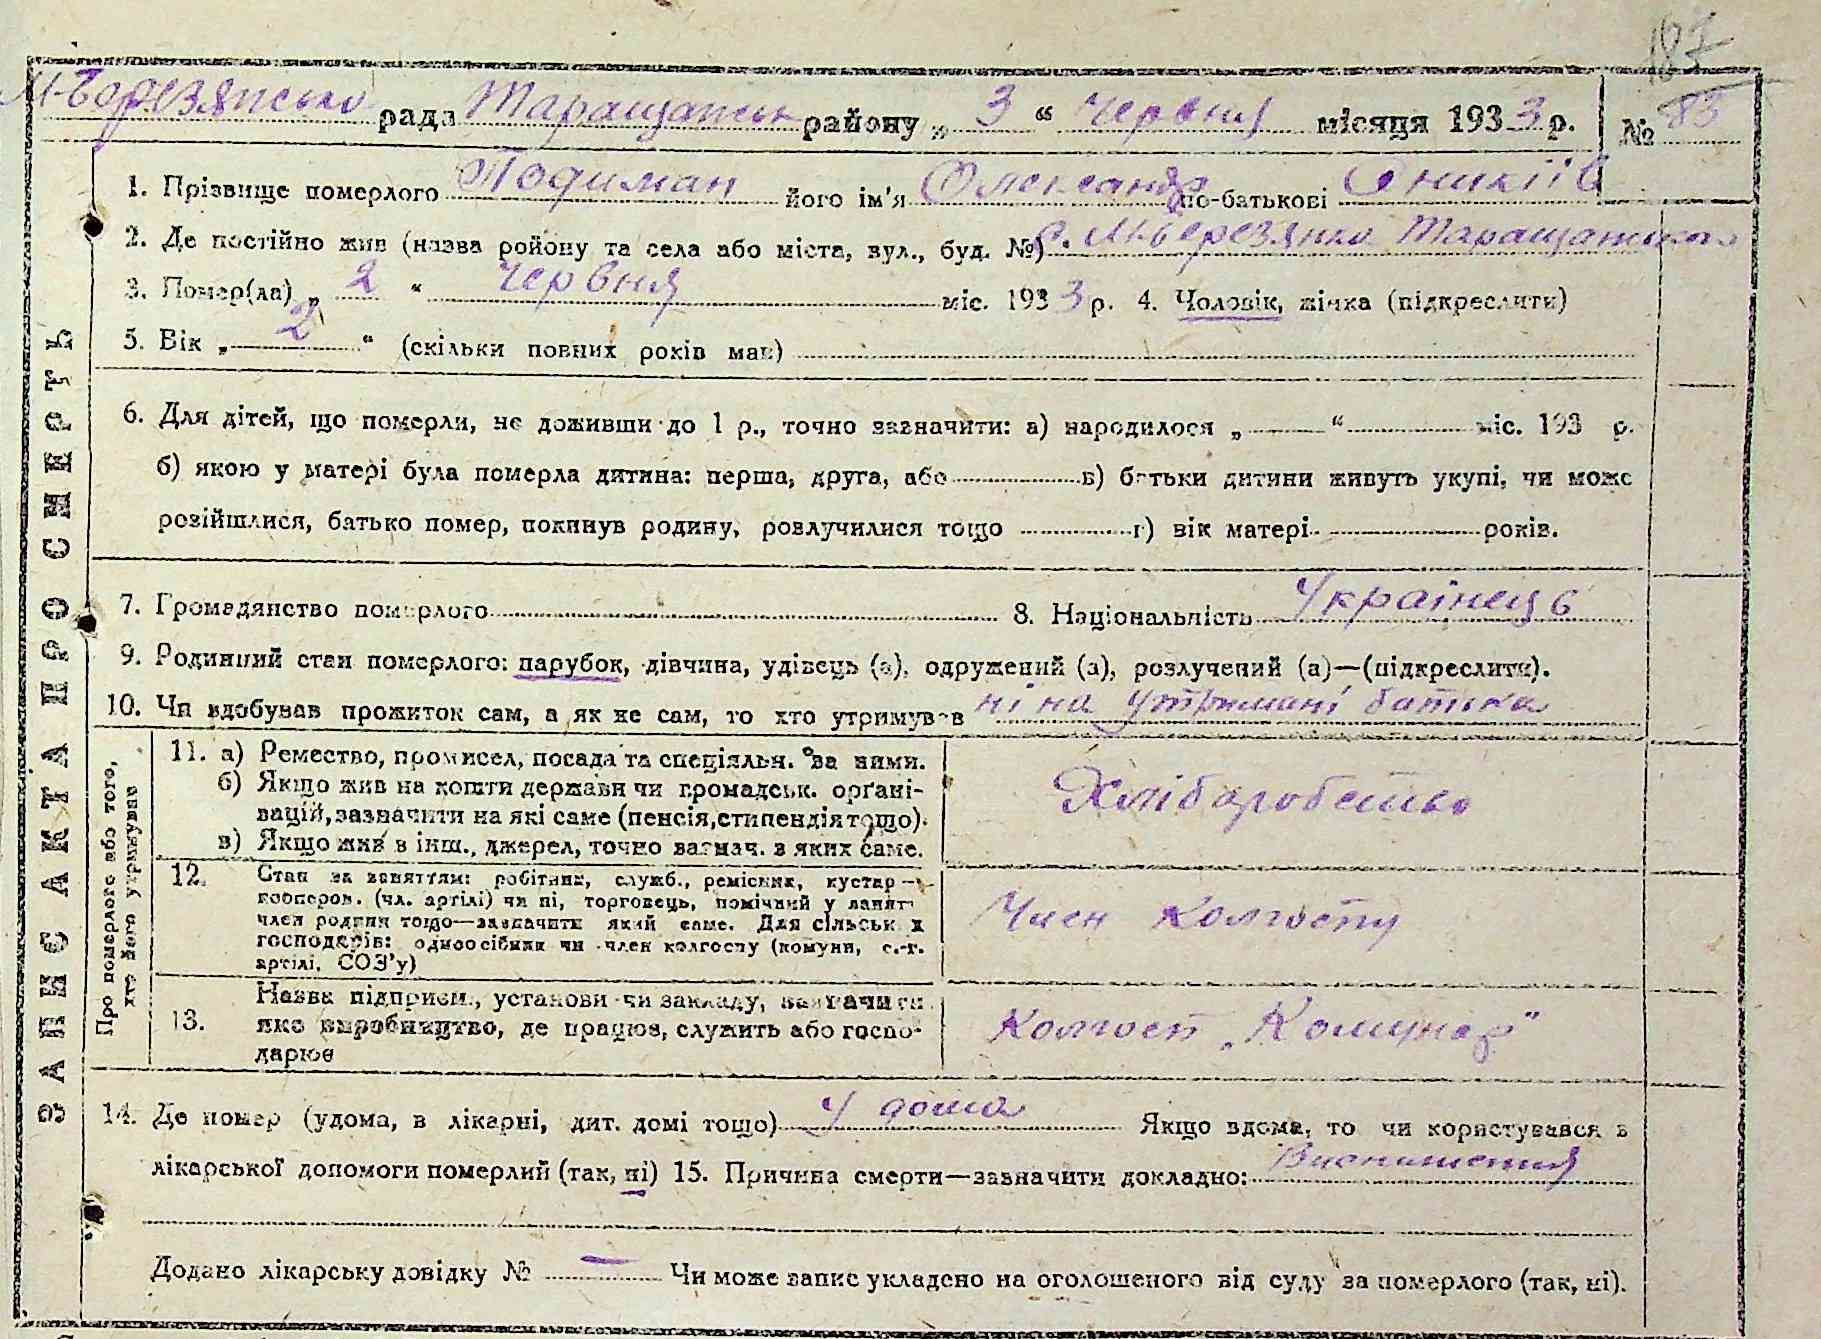 187
М-Березянсько рада Таращанськ району „ 3 “ Червня місяця 1933 р. № 83
1. Прізвище померлого Подиман його ім'я Олександр по-батькові Оникіїв
2. Де постійно жив (назва ройону та села або міста, вул., буд. №) с. М-Березянка Таращанського
3. Помер(ла) „ 2 “ червня міс. 1933 р. 4. Чоловік, жінка (підкреслити)
5. Вік „ 2 “ (скільки повних років мав)
6. Для дітей, що померли, не доживши до 1 р., точно зазначити: а) народилося „ “ міс. 193 р.
б) якою у матері була померла дитина: перша, друга, або в) батьки дитини живуть укупі, чи може
розійшлися, батько помер, покинув родину, розлучилися тощо г) вік матері років.
7. Громадянство померлого 8. Національність Українець
9. Родинний стан померлого: парубок, дівчина, удівець (а), одружений (а), розлучений (а)—(підкреслити).
10. Чи здобував прожиток сам, а як не сам, то хто утримував ні на утримані батька
ЗАПИС АКТА ПРО СМЕРТЬ
Про померлого або того,
хто його утримував
11. а) Ремество, промисел, посада та спеціяльн. за ними.
б) Якщо жив на кошти держави чи громадськ. орґані-
зацій, зазначити на які саме (пенсія, стипендія тощо).
в) Якщо жив в інш., джерел, точно зазнач. з яких саме.
Хліборобство
12. Стан за заняттям: робітник, служб., ремісник, кустар—
кооперов. (чл. артілі) чи ні, торговець, помічний у занятт
член родини тощо—зазначити який саме. Для сільськ х
господарів: одноосібник чи член колгоспу (комуни, с.-г.
артілі, СОЗ'у)
Член колгоспу
13. Назва підприєм., установи чи закладу, зазначити
яке виробництво, де працює, служить або госпо-
дарює
Колгосп „Комунар"
14. Де помер (удома, в лікарні, дит. домі тощо) У дома Якщо вдома, то чи користувався з
лікарської допомоги померлий (так, ні) 15. Причина смерти—зазначити докладно: Виснаження
Додано лікарську довідку № — Чи може запис укладено на оголошеного від суду за померлого (так, ні).